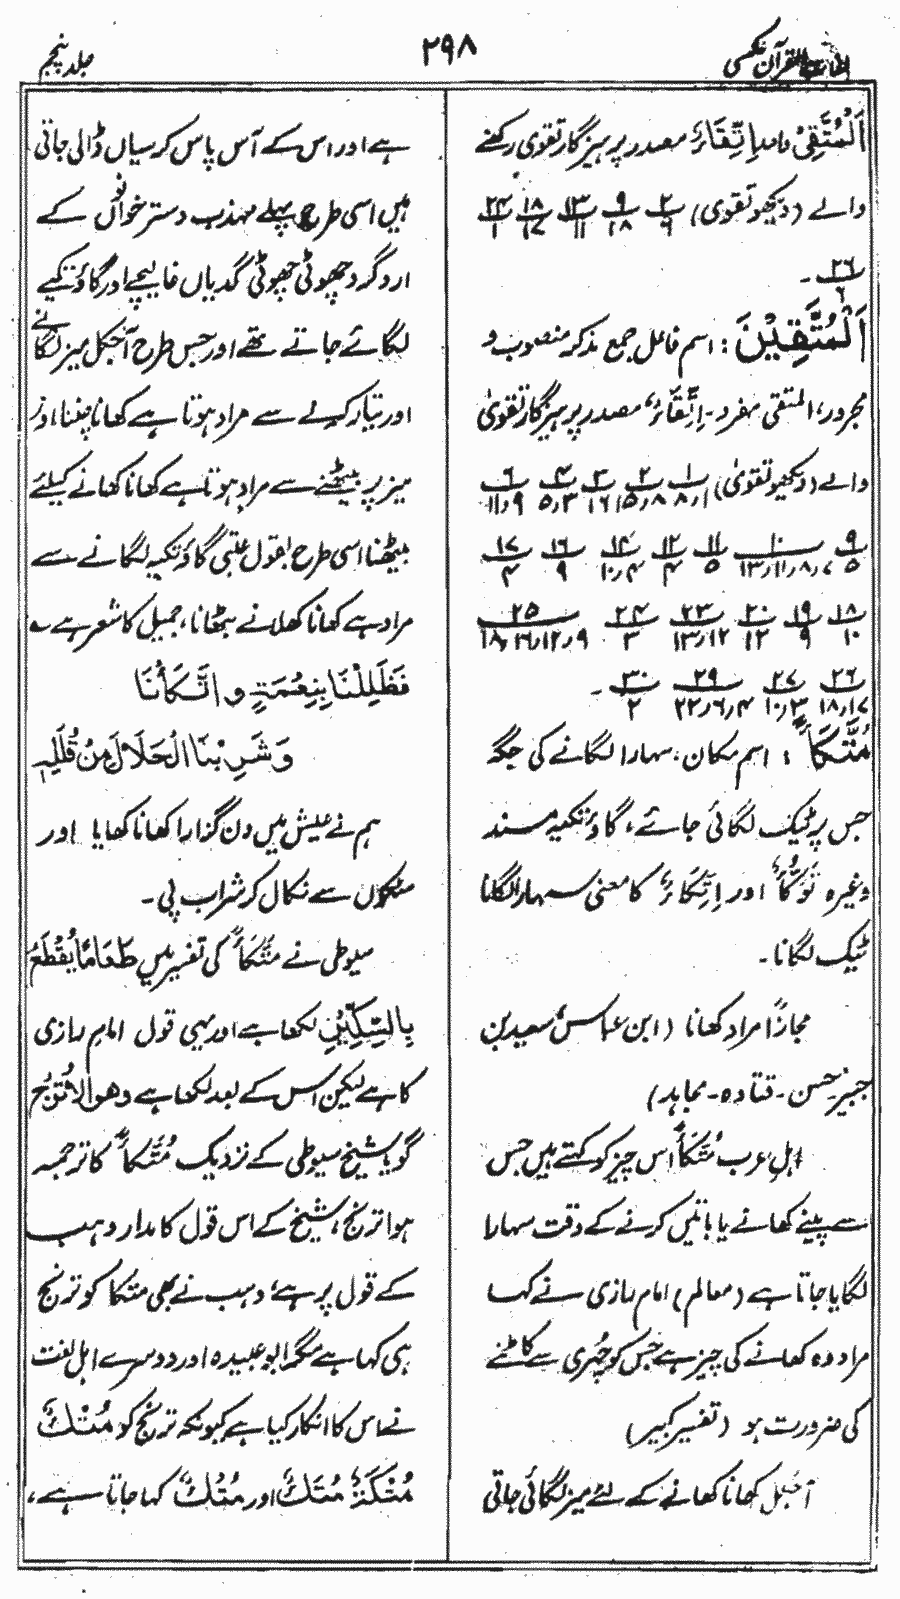 لغات القرآن عکسی
۲۹۸
جلد پنجم
اَلْمُتَّقِیْ واحد اِتِّقَاءٌ مصدر پرہیزگار تقوی رکھنے
والے (دیکھو تقوی) ۲/۹ ۹/۱۸ ۱۳/۱۱ ۱۸/۱۷ ۲۴/۱
۲۶/۲ ۔
اَلْمُتَّقِیْنَ : اسم فاعل جمع مذکر منصوب و
مجرور، المتقی مفرد۔ اِتِّقَاءٌ مصدر پرہیزگار تقویٰ
والے (دیکھو تقویٰ) ۱/۱ر۸ر۸ ۲/۸ر۱۵ ۳/۱۶ ۴/۳ر۵ ۶/۹ر۱۱
۹/۵ ۱۰/۷ر۸ر۱۱ر۱۳ ۱۱/۵ ۱۲/۴ ۱۴/۴ر۱۰ ۱۶/۹ ۱۷/۴
۱۸/۱۰ ۱۹/۹ ۲۰/۱۲ ۲۳/۱۲ر۱۳ ۲۴/۳ ۲۵/۹ر۱۲ر۱۶ر۱۸
۲۶/۱۷ر۱۸ ۲۷/۳ر۱۰ ۲۹/۴ر۶ر۲۲ ۳۰/۲ ۔
مُتَّکَأً : اسم مکان۔ سہارا لگانے کی جگہ
جس پر ٹیک لگائی جائے، گاؤ تکیہ مسند
وغیرہ تَوَکُّأٌ اور اِتِّکَاءٌ کا معنی سہارا لگانا
ٹیک لگانا۔
مجازاً مراد کھانا (ابن عباس سعید بن
جبیر۔ حسن۔ قتادہ۔ مجاہد)
اہل عرب مُتَّکَأً اس چیز کو کہتے ہیں جس
سے پینے کھانے یا باتیں کرنے کے وقت سہارا
لگایا جاتا ہے (معالم) امام رازی نے کہا
مراد وہ کھانے کی چیز ہے جس کو چُھری سے کاٹنے
کی ضرورت ہو (تفسیر کبیر)
آجکل کھانا کھانے کے لئے میز لگائی جاتی
ہے اور اس کے آس پاس کرسیاں ڈالی جاتی
ہیں اسی طرح پہلے مہذب دسترخوانوں کے
اردگرد چھوٹی چھوٹی گدیاں غالیچے اور گاؤ تکیے
لگائے جاتے تھے اور جس طرح آجکل میز لگانے
اور تیار کرنے سے مراد ہوتا ہے کھانا چننا اور
میز پر بیٹھنے سے مراد ہوتا ہے کھانا کھانے کیلئے
بیٹھنا اسی طرح بقول عتبی گاؤ تکیہ لگانے سے
مراد ہے کھانا کھلانے بٹھانا، جمیل کا شعر ہے ؎
فَظَلِلْنَا بِنِعْمَةٍ وَ اتَّکَأْنَا
وَشَرِبْنَا الْحَلَالَ مِنْ قُلَلِهٖ
ہم نے عیش میں دن گزارا کھانا کھایا اور
مٹکوں سے نکال کر شراب پی۔
سیوطی نے مُتَّکَأً کی تفسیر میں طَعَامًا یُقْطَعُ
بِالسِّکِّیْنِ لکھا ہے اور یہی قول امام رازی
کا ہے لیکن اس کے بعد لکھا ہے وھو الاُتْرُجُّ
گویا شیخ سیوطی کے نزدیک مُتَّکَأً کا ترجمہ
ہوا ترنج، شیخ کے اس قول کا مدار وہب
کے قول پر ہے، وہب نے بھی متکا کو ترنج
ہی کہا ہے مگر ابو عبیدہ اور دوسرے اہل لغت
نے اس کا انکار کیا ہے کیونکہ ترنج کو مُتْکٌ
مُتْکَةٌ مُتَکٌ اور مُتُکٌ کہا جاتا ہے،